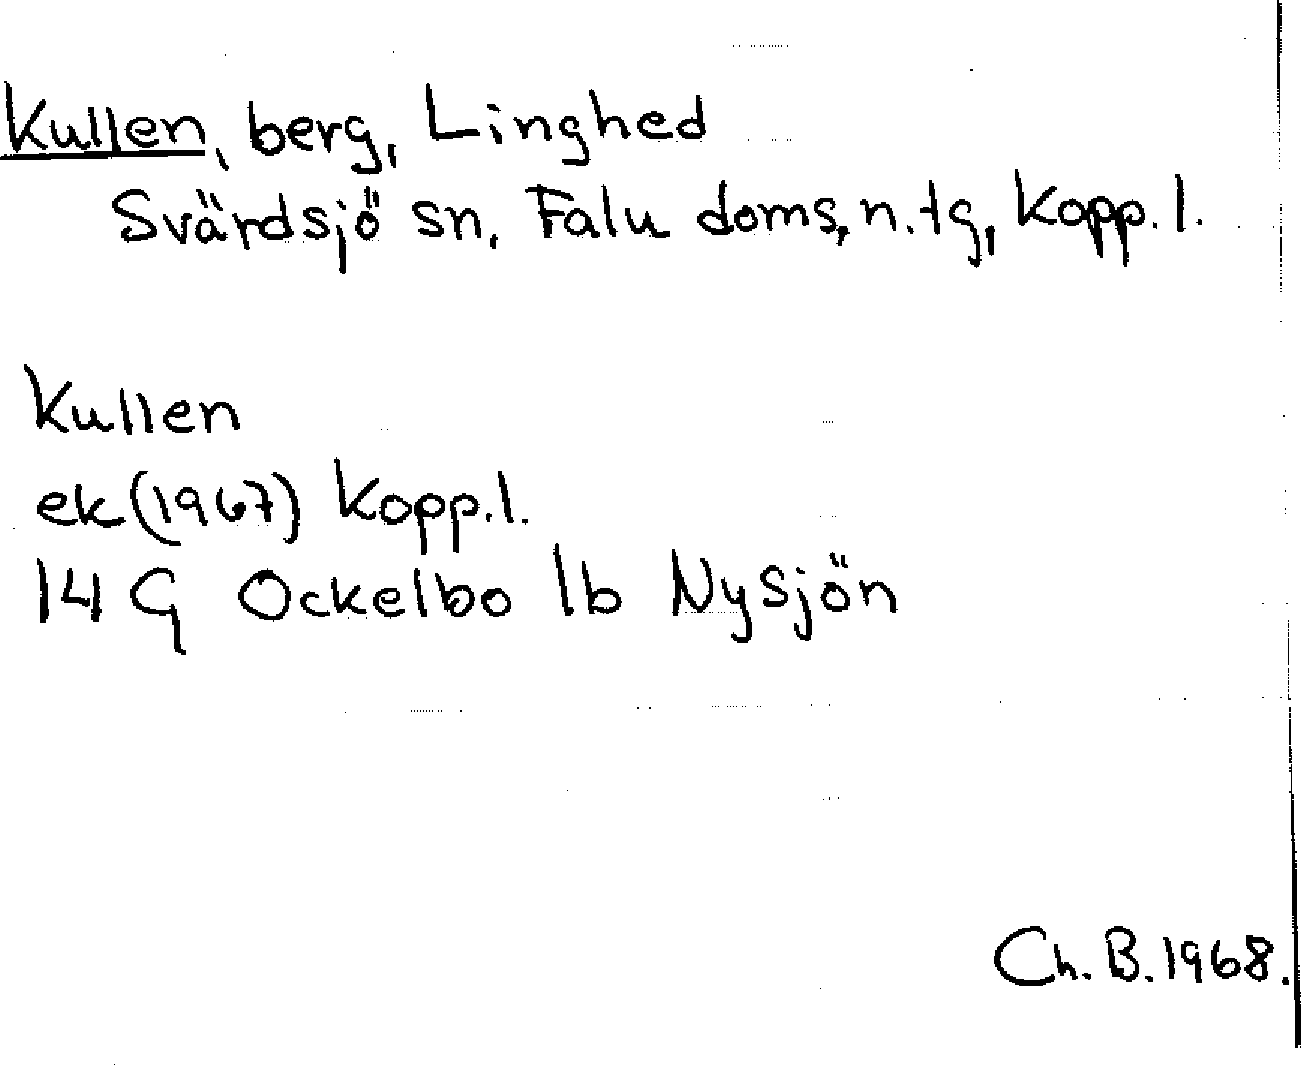 Kullen, berg, Linghed
Svärdsjö sn, Falu doms, n. tg, Kopp. l.
Kullen
ek (1967) Kopp. l.
14 G Ockelbo 1b Nysjön
Ch. B. 1968.